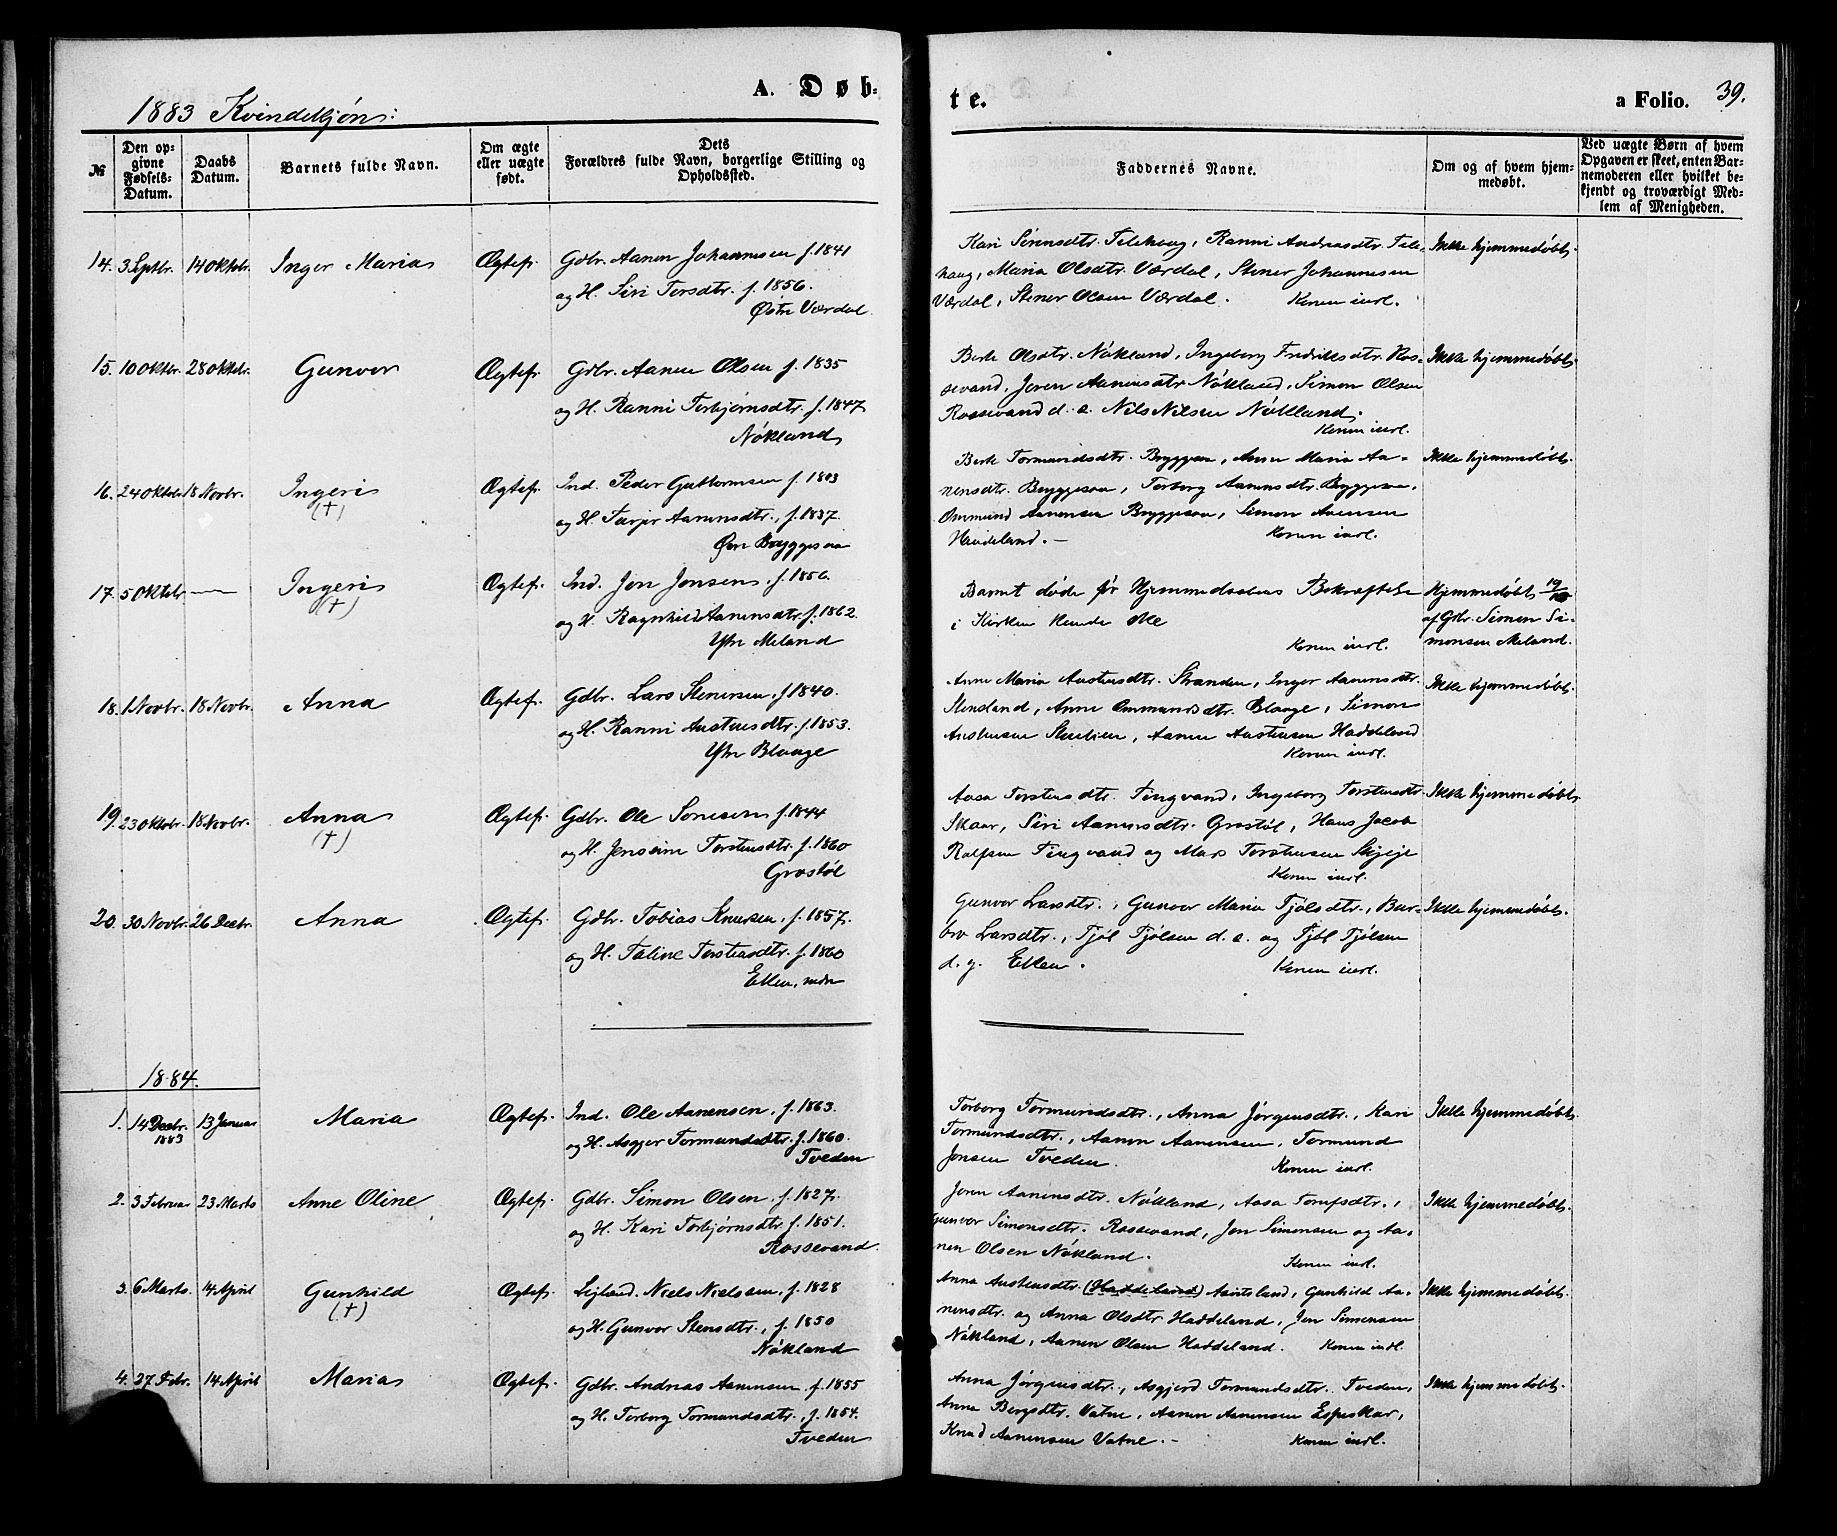 A. Døb-
te.
a Folio. 39.
1883 Kvindekjøn:
№
Den op-
givne
Fødsels-
Datum.
Daabs
Datum.
Barnets fulde Navn.
Om ægte
eller uægte
født.
Dets
Forældres fulde Navn, borgerlige Stilling og
Opholdssted.
Faddernes Navne.
Om og af hvem hjem-
medøbt.
Ved uægte Børn af hvem
Opgaven er skeet, enten Bar-
nemoderen eller hvilket be-
kjendt og troværdigt Med-
lem af Menigheden.
14. 3 Septbr. 14 Oktbr. Inger Maria Ægtef. Gdbr. Aanen Johannesen f. 1841
og H. Siri Torsdtr. f. 1856.
Østre Værdal.
Kari Sørensdtr. Telehaug, Ranni Andreasdtr. Tele-
haug, Maria Olsdtr. Værdal, Stener Johannesen
Værdal, Stener Olsen Værdal. Konen indl.
Ikke hjemmedøbt.
15. 10 Oktbr. 28 Oktbr. Gunvor Ægtef. Gdbr. Aanen Olsen f. 1835
og H. Ranni Torbjørnsdtr. f. 1847
Nökland
Berte Olsdtr. Nökland, Ingeborg Fredriksdtr. Ros-
sevand, Joren Aanensdtr. Nökland, Simon Olsen
Rossevand d. a. Nils Nilsen Nökland.
Konen indl.
Ikke hjemmedøbt.
16. 24 Oktbr. 18 Novbr. Ingeri Ægtef. Ind. Peder Guttormsen f. 1803
(†)
og H. Tarjer Aanensdtr., f. 1837.
Øvre Bryggesaa
Berte Tormundsdtr. Bryggesaa, Anne Maria Aa-
nensdtr. Bryggesaa, Torborg Aanensdtr. Bryggesaa,
Ommund Aanensen Bryggesaa, Simon Avensen
Haddeland. — Konen indl.
Ikke hjemmedøbt.
17. 5 Oktbr. — Ingeri Ægtef. Ind. Jon Jonsen, f. 1856.
(†)
og H. Ragnhild Aanensdtr. f. 1862.
Ytre Meland
Barnet døde før Hjemmedaabens Bekræftelse
i Kirken kunde ske
Konen indl.
Hjemmedøbt 19/10
af Gbr. Simon Si-
monsen Meland.
18. 1 Novbr. 18 Novbr. Anna Ægtef. Gdbr. Lars Stenersen, f 1840.
og H. Ranni Austensdtr. f. 1853.
Ytre Blaage
Anne Maria Austensdtr. Stranden, Inger Aanensdtr.
Stensland, Anne Ommundsdtr. Blaage, Simon
Austensen Stenlien, Aanen Austensen Haddeland
Konen indl.
Ikke hjemmedøbt.
19. 23 Oktobr. 18 Novbr. Anna Ægtef. Gdbr. Ole Sørensen f. 1844
(†)
og H. Jensine Torstensdtr. f. 1860
Grostøl
Aasa Torstensdtr. Tingvand, Ingeborg Torstensdtr.
Skaar, Siri Aanensdtr. Grostøl, Hans Jacob
Rolfsen Tingvand og Mads Torstensen Skjeje
Konen indl.
Ikke hjemmedøbt.
20. 30 Novbr. 26 Decbr. Anna Ægtef. Gdbr. Tobias Knutsen, f. 1857.
og H. Taline Torstensdtr. f. 1860
Eken, nedre
Gunvor Larsdtr., Gunvor Maria Tjølsdtr., Bar-
bro Larsdtr., Tjøl Tjølsen d. a. og Tjøl Tjølsen
d. y. Eken. Konen indl.
Ikke hjemmedøbt.
1884.
1. 14 Decbr. 13 Januar Maria Ægtef. Ind. Ole Aanensen, f. 1863.
1883
og H. Asgjer Tormundsdtr. f. 1860.
Tveden
Torborg Tormundsdtr., Anna Jørgensdtr., Kari
Tormundsdtr., Aanen Aanensen, Tormund
Jonsen Tveden. Konen indl.
Ikke hjemmedøbt.
2. 3 Februar 23 Marts Anne Oline Ægtef. Gdbr. Simon Olsen, f. 1827.
og H. Kari Torbjørnsdtr. f. 1851.
Rossevand.
Joren Aanensdtr. Nökland, Aasa
Gunvor Simonsdtr. Rossevand, Jon Simonsen og Aa-
nen Olsen Nökland. Konen indl.
Ikke hjemmedøbt.
3. 6 Marts. 14 April Gunhild Ægtef. Leiland. Niels Nielsen, f. 1828
(†)
og H. Gunvor Stensdtr., f. 1850
Nökland
Anna Austensdtr. (Haddeland) Aamtsland, Gunhild Aa-
nensdtr. og Anna Olsdtr Haddeland, Jon Simonsen
Nökland, Aanen Olsen Haddeland. Konen indl.
Ikke hjemmedøbt.
4. 27 Febr. 14 April Maria Ægtef. Gdbr. Andreas Aanensen f. 1855
og H. Torborg Tormundsdtr., f. 1854.
Tveden
Anna Jørgensdtr., Asgjerd Tormundsdtr. Tveden,
Anna Bergsdtr. Vatne, Aanen Aanensen Espeskar,
Knud Aanensen Vatne. — Konen indl.
Ikke hjemmedøbt.